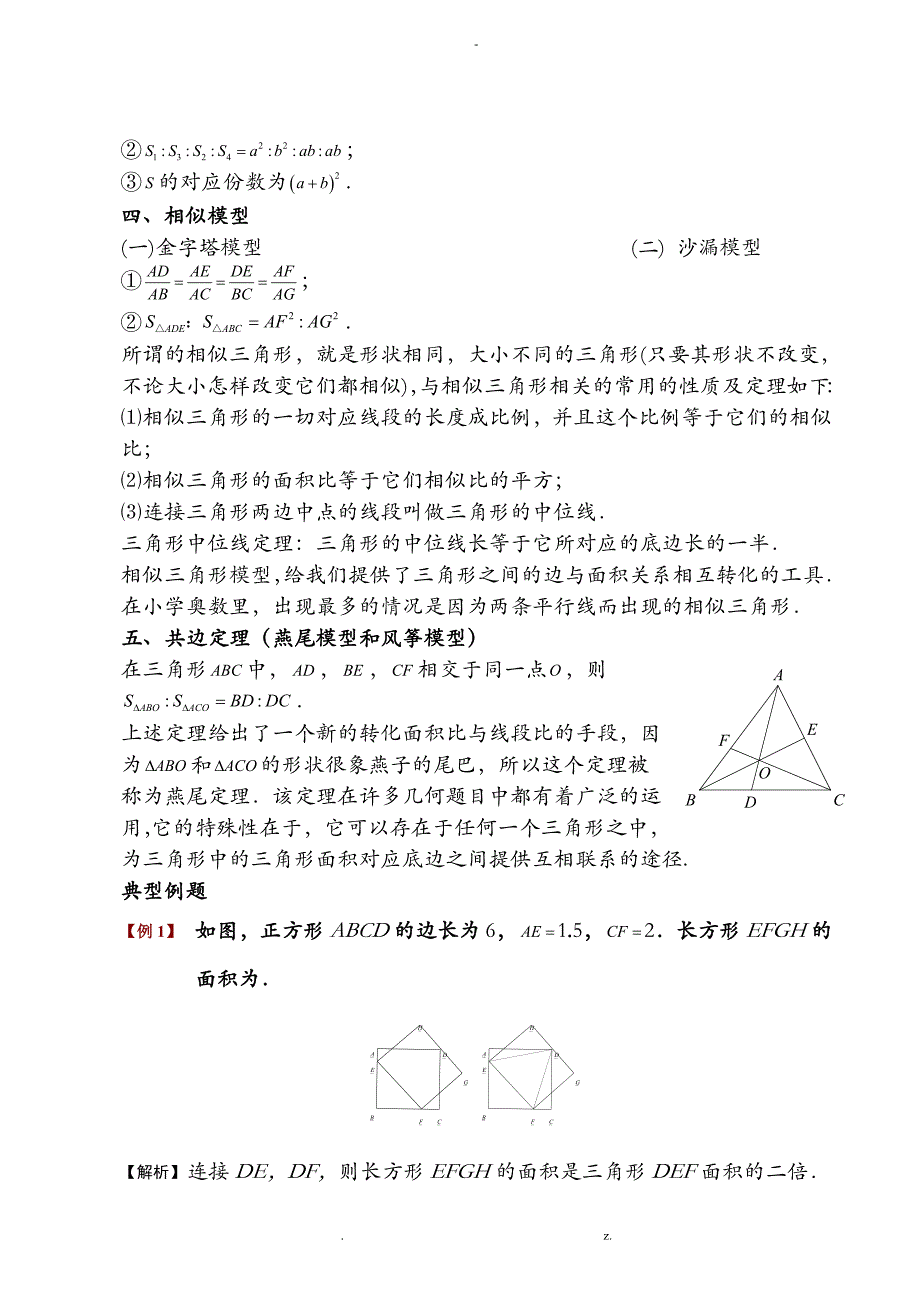 -
②S₁:S₃:S₂:S₄=a²:b²:ab:ab；
③S的对应份数为(a+b)²．
四、相似模型
(一)金字塔模型 (二) 沙漏模型
①AD/AB=AE/AC=DE/BC=AF/AG；
②S△ADE：S△ABC=AF²:AG²．
所谓的相似三角形，就是形状相同，大小不同的三角形(只要其形状不改变，
不论大小怎样改变它们都相似),与相似三角形相关的常用的性质及定理如下:
⑴相似三角形的一切对应线段的长度成比例，并且这个比例等于它们的相似
比；
⑵相似三角形的面积比等于它们相似比的平方；
⑶连接三角形两边中点的线段叫做三角形的中位线．
三角形中位线定理：三角形的中位线长等于它所对应的底边长的一半．
相似三角形模型,给我们提供了三角形之间的边与面积关系相互转化的工具．
在小学奥数里，出现最多的情况是因为两条平行线而出现的相似三角形．
五、共边定理（燕尾模型和风筝模型）
在三角形ABC中，AD，BE，CF相交于同一点O，则
SΔABO:SΔACO=BD:DC．
上述定理给出了一个新的转化面积比与线段比的手段，因
为ΔABO和ΔACO的形状很象燕子的尾巴，所以这个定理被
称为燕尾定理．该定理在许多几何题目中都有着广泛的运
用,它的特殊性在于，它可以存在于任何一个三角形之中，
为三角形中的三角形面积对应底边之间提供互相联系的途径.
A
E
F
O
B D C
典型例题
【例1】 如图，正方形ABCD的边长为6，AE=1.5，CF=2．长方形EFGH的
面积为．
H H
A D A D
E E
G G
B F C B F C
【解析】连接DE，DF，则长方形EFGH的面积是三角形DEF面积的二倍．
. z.